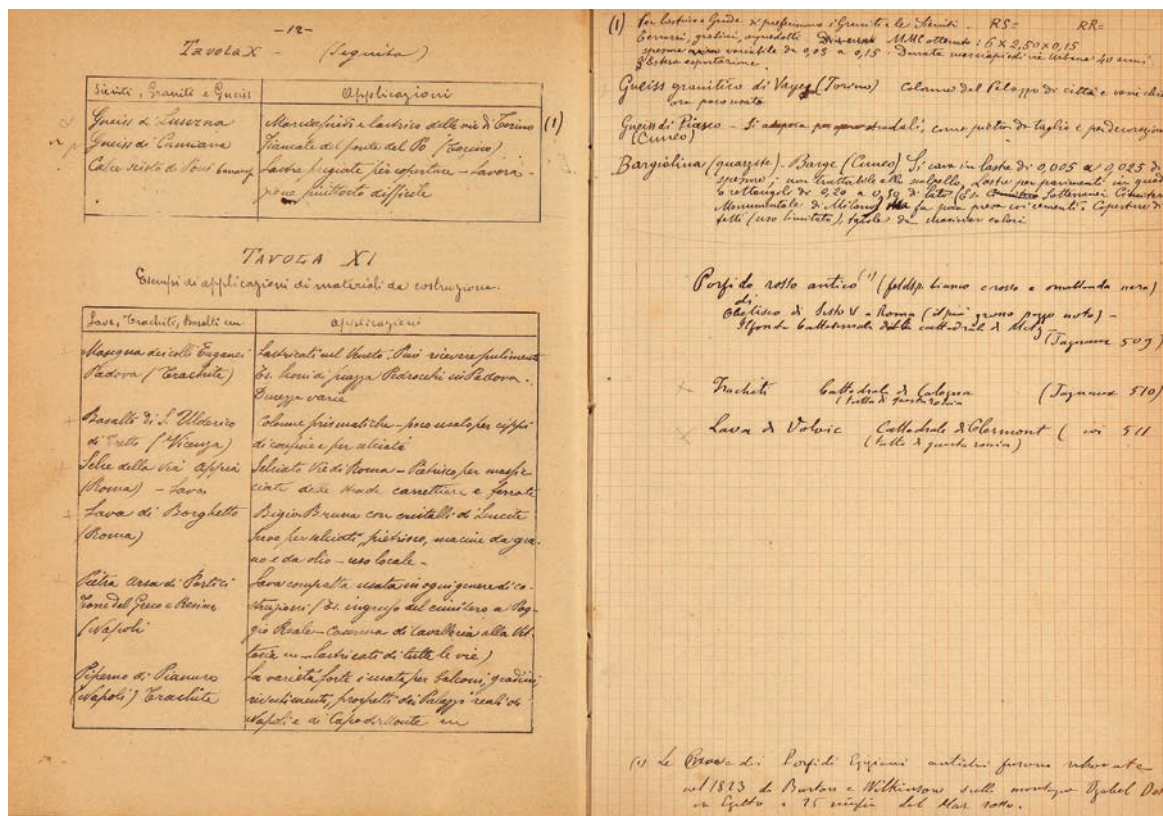 -12-
Tavola X - (Seguito)
Sieniti, Graniti e Gneiss
Applicazioni
Gneiss di Luserna
Marciapiedi e lastrico delle vie di Torino (1)
Gneiss di Cumiana
Fiancate del ponte del Po (Torino)
Calcescisto di Pont
Lastre pregiate per coperture - Lavora-
zione piuttosto difficile
TAVOLA XI
Esempi di applicazioni di materiali da costruzione.
Lave, Trachiti, Basalti
Applicazioni
Masegna dei colli Euganei
Padova (Trachite)
Lastricati nel Veneto. Può ricevere pulimento
Es. leoni di piazza Pedrocchi in Padova.
Durezza varia
Basalto di S. Ulderico
di Tretto (Vicenza)
Colonne prismatiche - poco usato per cippi
di confine e per selciati
Selce della Via Appia
(Roma) - Lava
Selciato Vie di Roma - Pietrisco per massic-
ciate delle strade carrettiere e ferrate
Lava di Borghetto
(Roma)
Bigio Bruna con cristalli di Leucite
Serve per selciati, pietrisco, macine da gra-
no e da olio - uso locale -
Pietra Arsa di Portici
Torre del Greco e Resina
(Napoli
Lava compatta usata in ogni genere di co-
struzioni (Es. ingresso del cimitero a Pog-
gio Reale - caserma di cavalleria alla Vit-
toria - lastricati di tutte le vie)
Piperno di Pianura
(Napoli) Trachite
La varietà forte è usata per balconi, gradini,
rivestimenti, prospetti dei Palazzi reali di
Napoli e di Capodimonte
(1) Per lastrico e Guide si preferiscono i Graniti e le Sieniti. RS= RR=
gradini, MMC ottenuto: 6 x 2,50 x 0,15
spessore variabile da 0,03 a 0,15. Durata marciapiedi vie urbane 40 anni.
Estesa esportazione
Gneiss granitico di Vayes (Torino) colonne del Palazzo di città e varie chiese
ora poco usato
Gneiss di Piasco - Si stradali, come pietra da taglio e per decorazione
(Cuneo)
Bargiolina (quarzite). Barge (Cuneo) Si cava in lastre di 0,005 a 0,025 di
spessore; non trattabile allo scalpello. Lastre per pavimenti in quadri
o rettangoli di 0,20 a 0,50 di lato (Es. Sotterranei Cimitero
Monumentale di Milano) fa poca presa coi cementi. Coperture di
tetti (uso limitato), tavole da macinar colori
Porfido rosso antico (1) (feldsp. bianco e rosso e orneblenda nera)
di
Obelisco di Sisto V a Roma (il più grosso pezzo noto) -
della cattedrale di Metz
(Jagnaux 509)
Trachiti Cattedrale di Cologna (Jagnaux 510)
(tutta di questa roccia
Lava di Volvic Cattedrale di Clermont ( ivi 511
(tutta di questa roccia)
(1) Le Cave dei Porfidi Egiziani antichi furono ritrovate
nel 1823 da Burton e Wilkinson sulle montagne Djebel
in Egitto a 25 miglia dal Mar rosso.